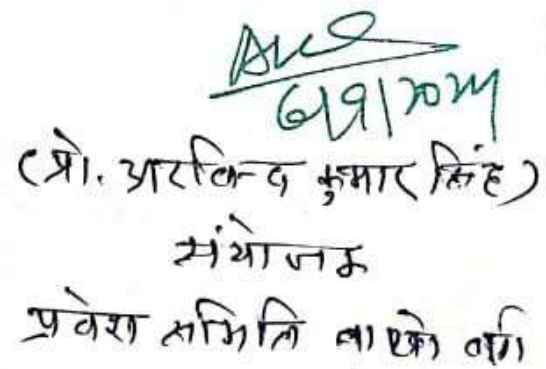 6/9/2024
(प्रो. अरविन्द कुमार सिंह)
संयोजक
प्रवेश समिति बाॅयो वर्ग